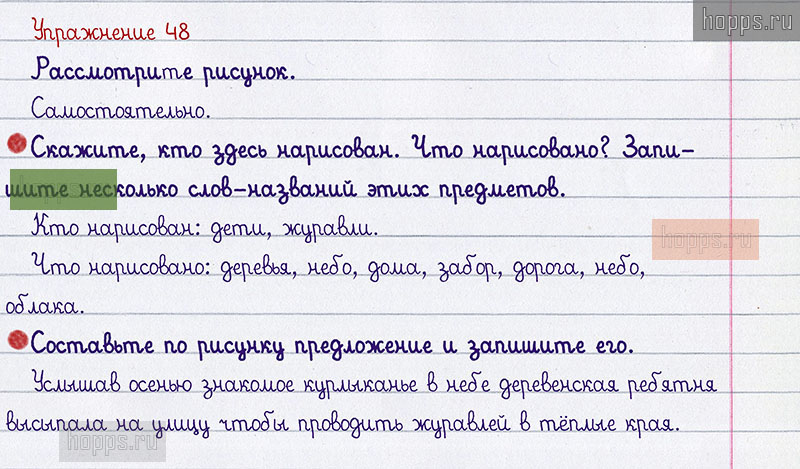 hopps.ru
Упражнение 48
Рассмотрите рисунок.
Самостоятельно.
Скажите, кто здесь нарисован. Что нарисовано? Запи-
шите несколько слов-названий этих предметов.
hopps.ru
Кто нарисован: дети, журавли.
hopps.ru
Что нарисовано: деревья, небо, дома, забор, дорога, небо,
облака.
Составьте по рисунку предложение и запишите его.
Услышав осенью знакомое курлыканье в небе деревенская ребятня
высыпала на улицу чтобы проводить журавлей в тёплые края.
hopps.ru